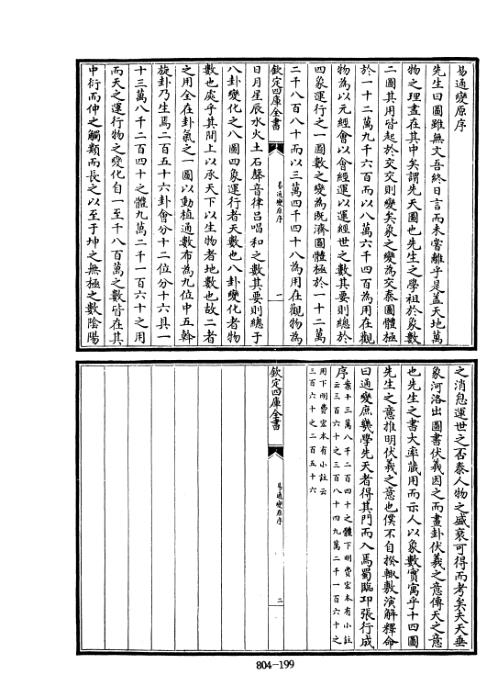 易通變原序
先生曰圖雖無文吾終日言而未嘗離乎是蓋天地萬
物之理盡在其中矣謂先天圖也先生之學祖於象數
二圖其用皆起於交交則變矣象之變為交泰圖體極
於一十二萬九千六百而以八萬六千四百為用在觀
物為以元經會以會經運以運經世之數其要則總於
四象運行之一圖數之變為既濟圖體極於一十二萬
二千八百八十而以三萬四千四十八為用在觀物為
欽定四庫全書
易通變原序
一
日月星辰水火土石聲音律呂唱和之數其要則總于
八卦變化之八圖四象運行者天數也八卦變化者物
數也處乎其間上以承天下以生物者地數也故二者
之用全在卦氣之一圖以動植通數布為九位中五斡
旋卦乃生焉二百五十六卦會分十二位分十六具一
十三萬八千二百四十之體九萬二千一百六十之用
而天之運行物之變化自一至千八百萬之數皆在其
中衍而伸之觸類而長之以至于坤之無極之數陰陽
之消息運世之否泰人物之盛衰可得而考矣夫天垂
象河洛出圖書伏羲因之而畫卦伏羲之意傳天之意
也先生之書大率藏用而示人以象數實寓乎十四圖
先生之意推明伏羲之意也僕不自揆輒敷演解釋命
曰通變庶幾學先天者得其門而入焉蜀臨邛張行成
序
案十三萬八千二百四十之體下明費宏本有小註
云三百六十之三百八十四九萬二千一百六十之
用下明費宏本有小註云
三百六十之二百五十六
欽定四庫全書
易通變原序
二
804-199